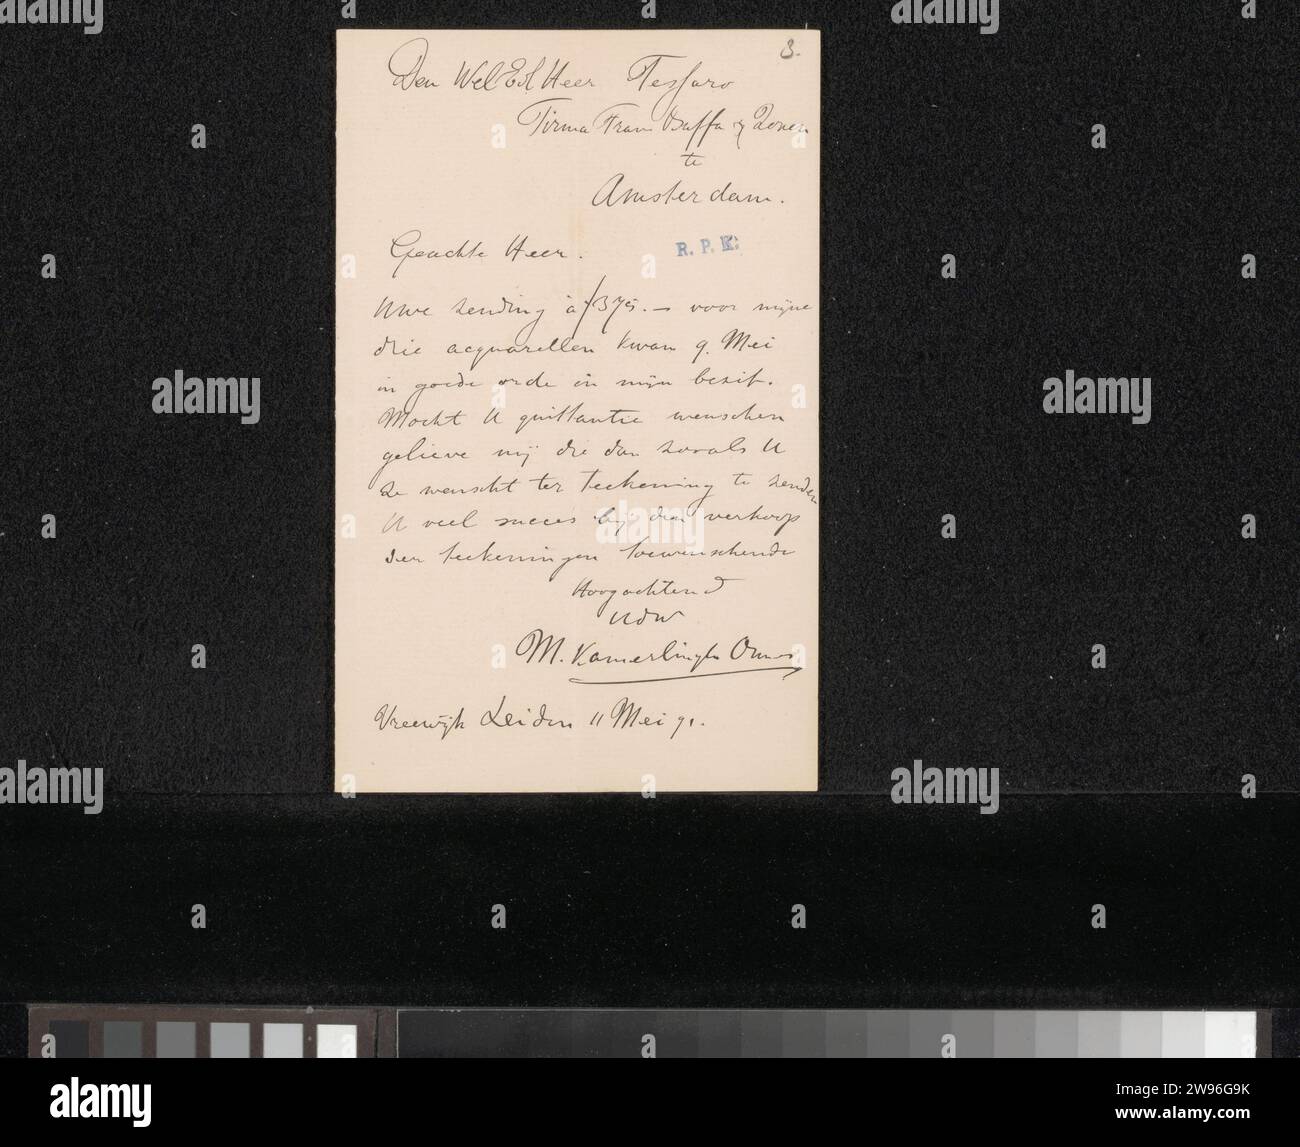 3.
Den WelEd Heer Tessaro
Firma Frans Buffa & Zonen
te
Amsterdam.
Geachte Heer.
R. P. K.
Uwe zending à ƒ375.— voor mijne
drie acquarellen kwam 9. Mei
in goede orde in mijn bezit.
Mocht U quittantie wenschen
gelieve mij die dan zooals U
ze wenscht ter teekening te zenden
U veel succes bij den verkoop
der teekeningen toewenschende
Hoogachtend
UdW
M. Kamerlingh Onnes
Vreewijk Leiden 11 Mei 91.
alamy
Image ID: 2W96G9K
www.alamy.com